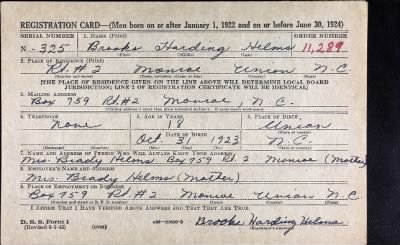 REGISTRATION CARD—(Men born on or after January 1, 1922 and on or before June 30, 1924)
SERIAL NUMBER 1. NAME (Print) ORDER NUMBER
N-325 Brooks Harding Helms 11,289
2. PLACE OF RESIDENCE (Print)
Rt. #2 Monroe Union N.C.
[THE PLACE OF RESIDENCE GIVEN ON THE LINE ABOVE WILL DETERMINE LOCAL BOARD
JURISDICTION; LINE 2 OF REGISTRATION CERTIFICATE WILL BE IDENTICAL]
3. MAILING ADDRESS
Box 759 Rt. #2 Monroe N.C.
4. TELEPHONE 5. AGE IN YEARS 6. PLACE OF BIRTH
None 18 Union
DATE OF BIRTH
Oct. 31 1923 N.C.
7. NAME AND ADDRESS OF PERSON WHO WILL ALWAYS KNOW YOUR ADDRESS
Mrs. Brady Helms Box 759 Rt. 2 Monroe (Mother)
8. EMPLOYER'S NAME AND ADDRESS
Mrs. Brady Helms (Mother)
9. PLACE OF EMPLOYMENT OR BUSINESS
Box 759 Rt. #2 Monroe Union N.C.
I AFFIRM THAT I HAVE VERIFIED ABOVE ANSWERS AND THAT THEY ARE TRUE.
D. S. S. Form 1
(Revised 6-1-42) (over) Brooks Harding Helms